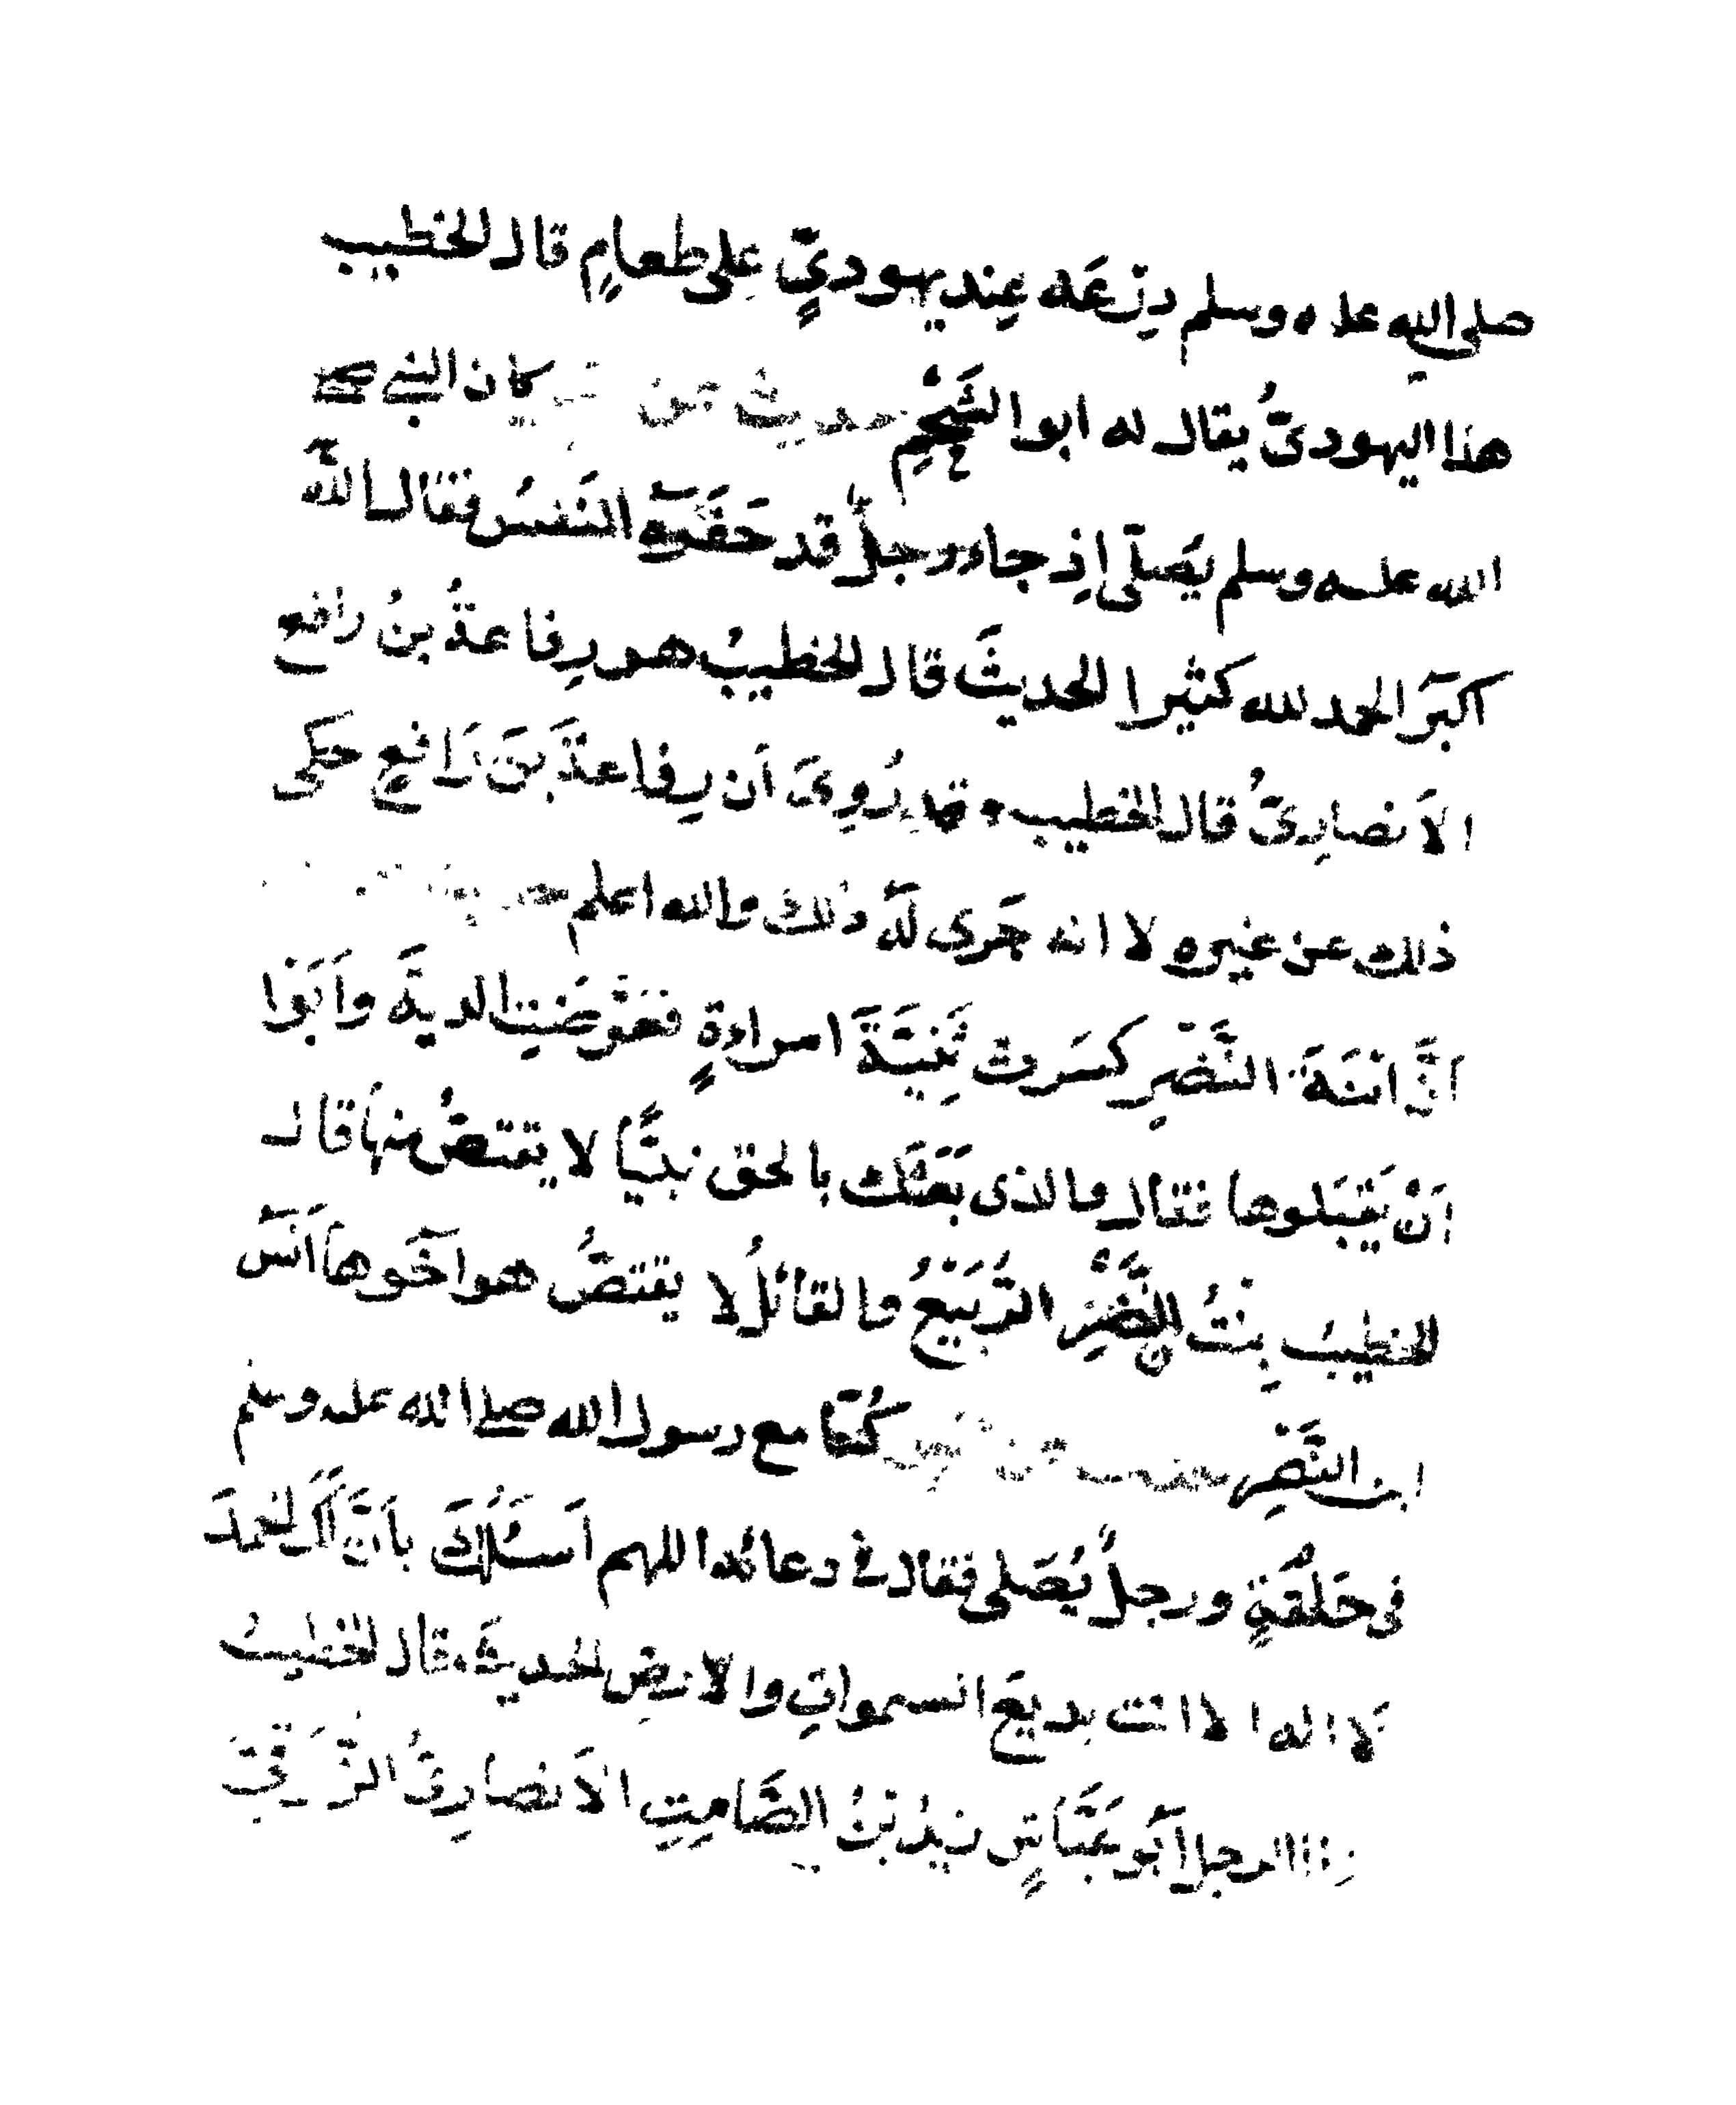 صلى الله عليه وسلم دِرْعَه عِند يهوديٍّ على طعامٍ قال الخطيب
هذا اليهوديُّ يقال له ابو الشَّحْمِ حديث كان النبي صلى
الله عليه وسلم يُصَلّى اِذ جاء رجلٌ قد حَفَزَه النَفَسُ فقال الله
اكبَر الحمد لله كثيرا الحديثَ قال الخطيبُ هو رِفاعةُ بنُ رافع
الاَنصارِىُّ قال الخطيب وقد رُوِىَ اَن رِفاعةَ بنَ رَافعٍ حكى
ذلك عن غيره لا انه جَرى لَه ذلك والله اعلم
اَنَّ ابْنَةَ النَّضْرِ كسَرت ثَنِيَّةَ امراةٍ فعَرَضَتِ الديةَ واَبَوْا
اَنْ يَقْبَلوها فقال والذى بَعَثَك بالحق نبيًّا لا يقتصُّ منها قال
الخطيبُ بِنْتُ النَّضْرِ الرُّبَيِّعُ والقائلُ لا يقتصُّ هو اَخُوها اَنَسُ
ابن النَّضْرِ كُنّا مع رسول الله صلى الله عليه وسلم
فى حَلْقةٍ ورجلٌ يُصَلى فقال فى دعائه اللهم اَسئلُكَ بانَّ لَكَ الحَمدَ
لا اله الا انت بديعَ السموات والارضِ الحديثَ قال الخطيبُ
هذا الرجل اَبُو عَيَّاشٍ زيدُ بنُ الصَّامِتِ الاَنصارِىُّ الزُّرَقِىُّ